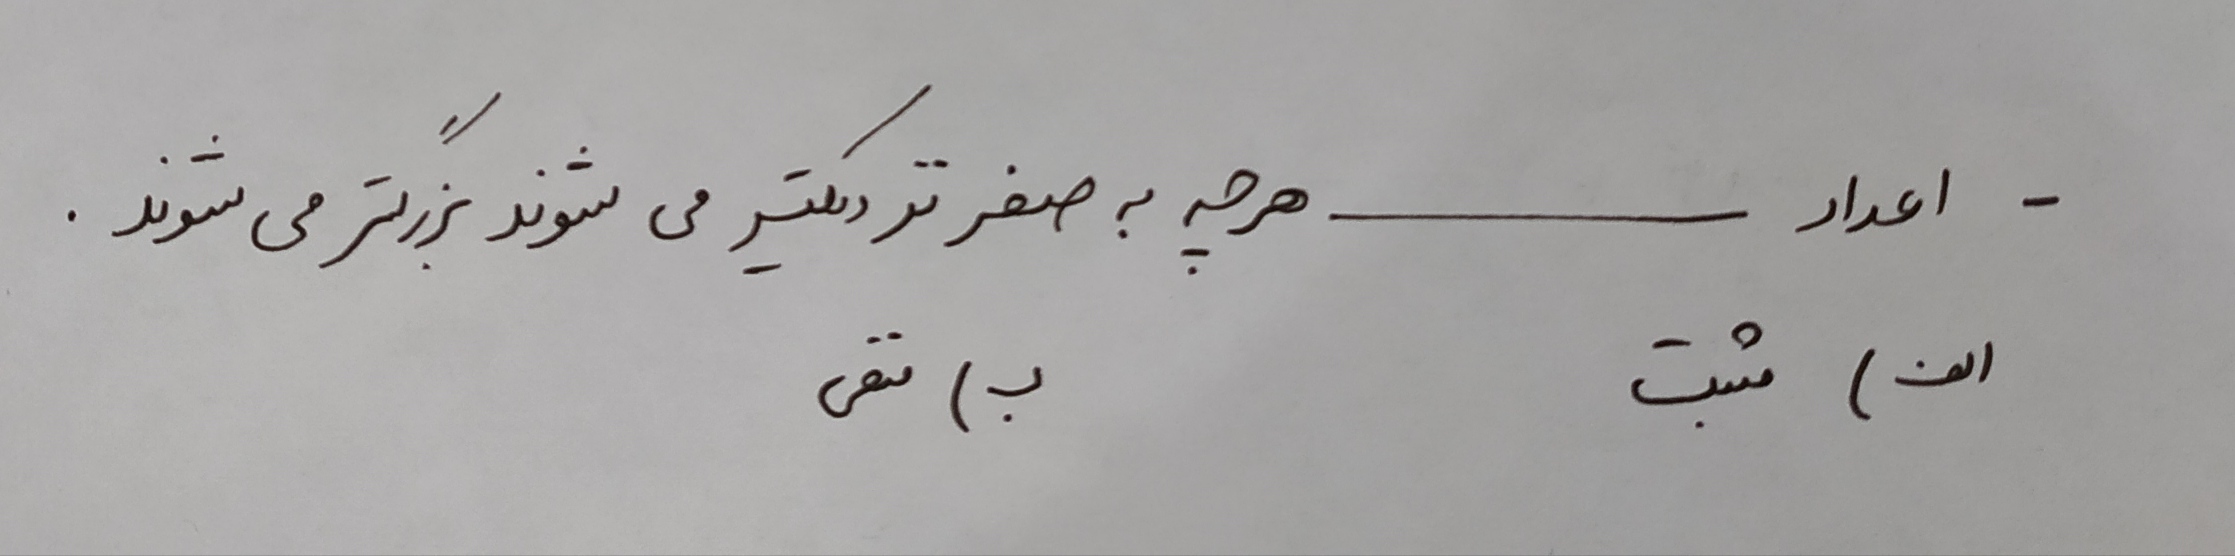 - اعداد ــــــــــــ هرچه به صفر نزدیکتر می شوند بزرگتر می شوند .
الف) مثبت ب) منفی